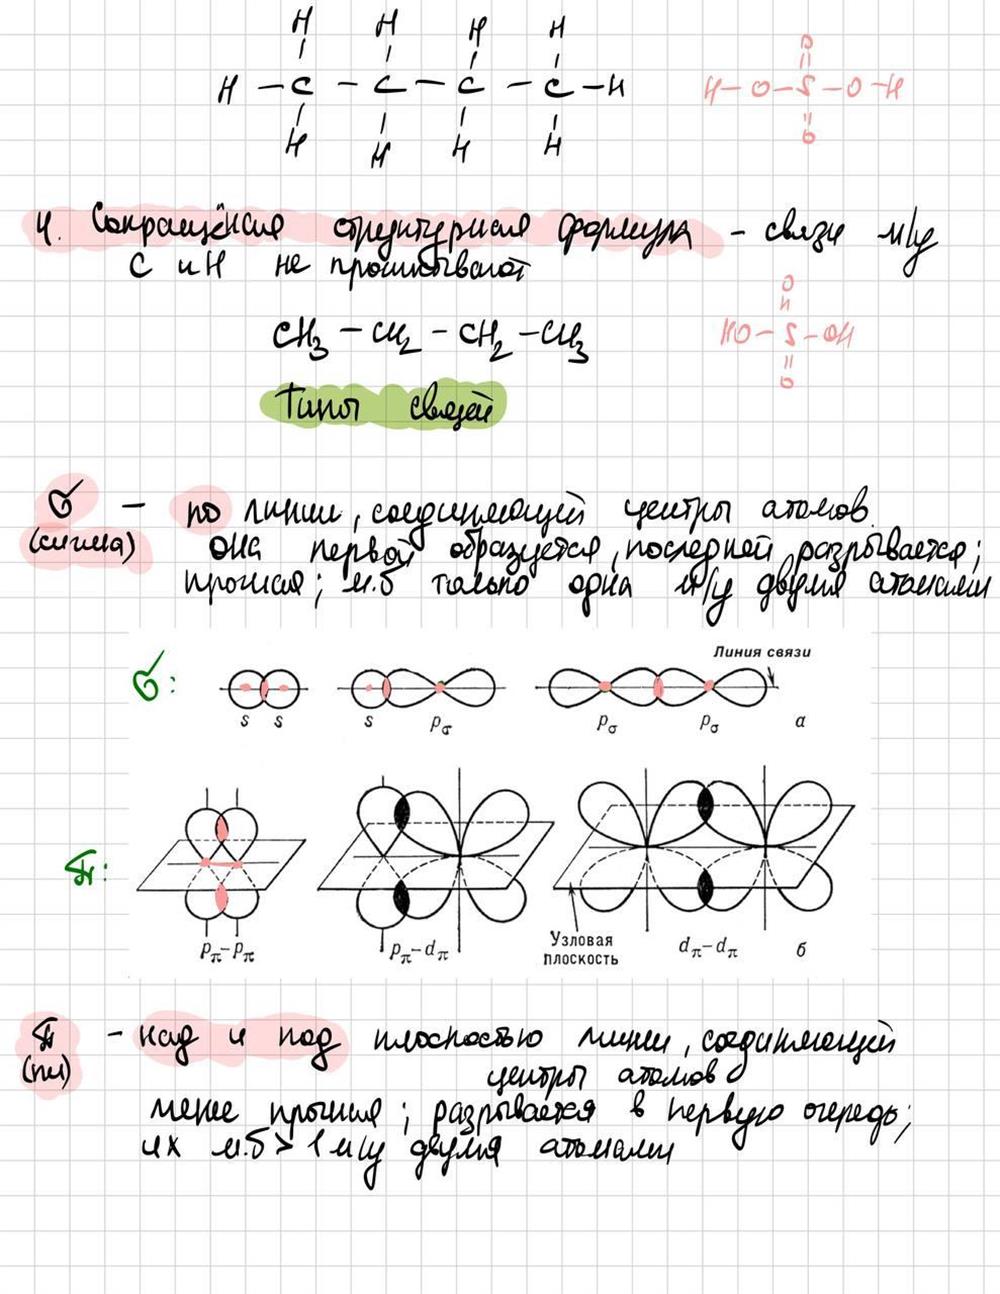 H H H H
H – C – C – C – C – H
H H H H
O
H – O – S – O – H
O
4. Сокращённая структурная формула – связи м/у
С и Н не прописывают
CH₃ – CH₂ – CH₂ – CH₃
O
HO – S – OH
O
Типы связей
σ – по линии, соединяющей центры атомов.
(сигма) она первой образуется, последней разрывается;
прочная; м.б только одна м/у двумя атомами
Линия связи
σ:
s s s pσ pσ pσ а
π:
pπ–pπ pπ–dπ Узловая плоскость dπ–dπ б
π – над и под плоскостью линии, соединяющей
(пи) центры атомов
менее прочная; разрывается в первую очередь;
их м.б > 1 м/у двумя атомами